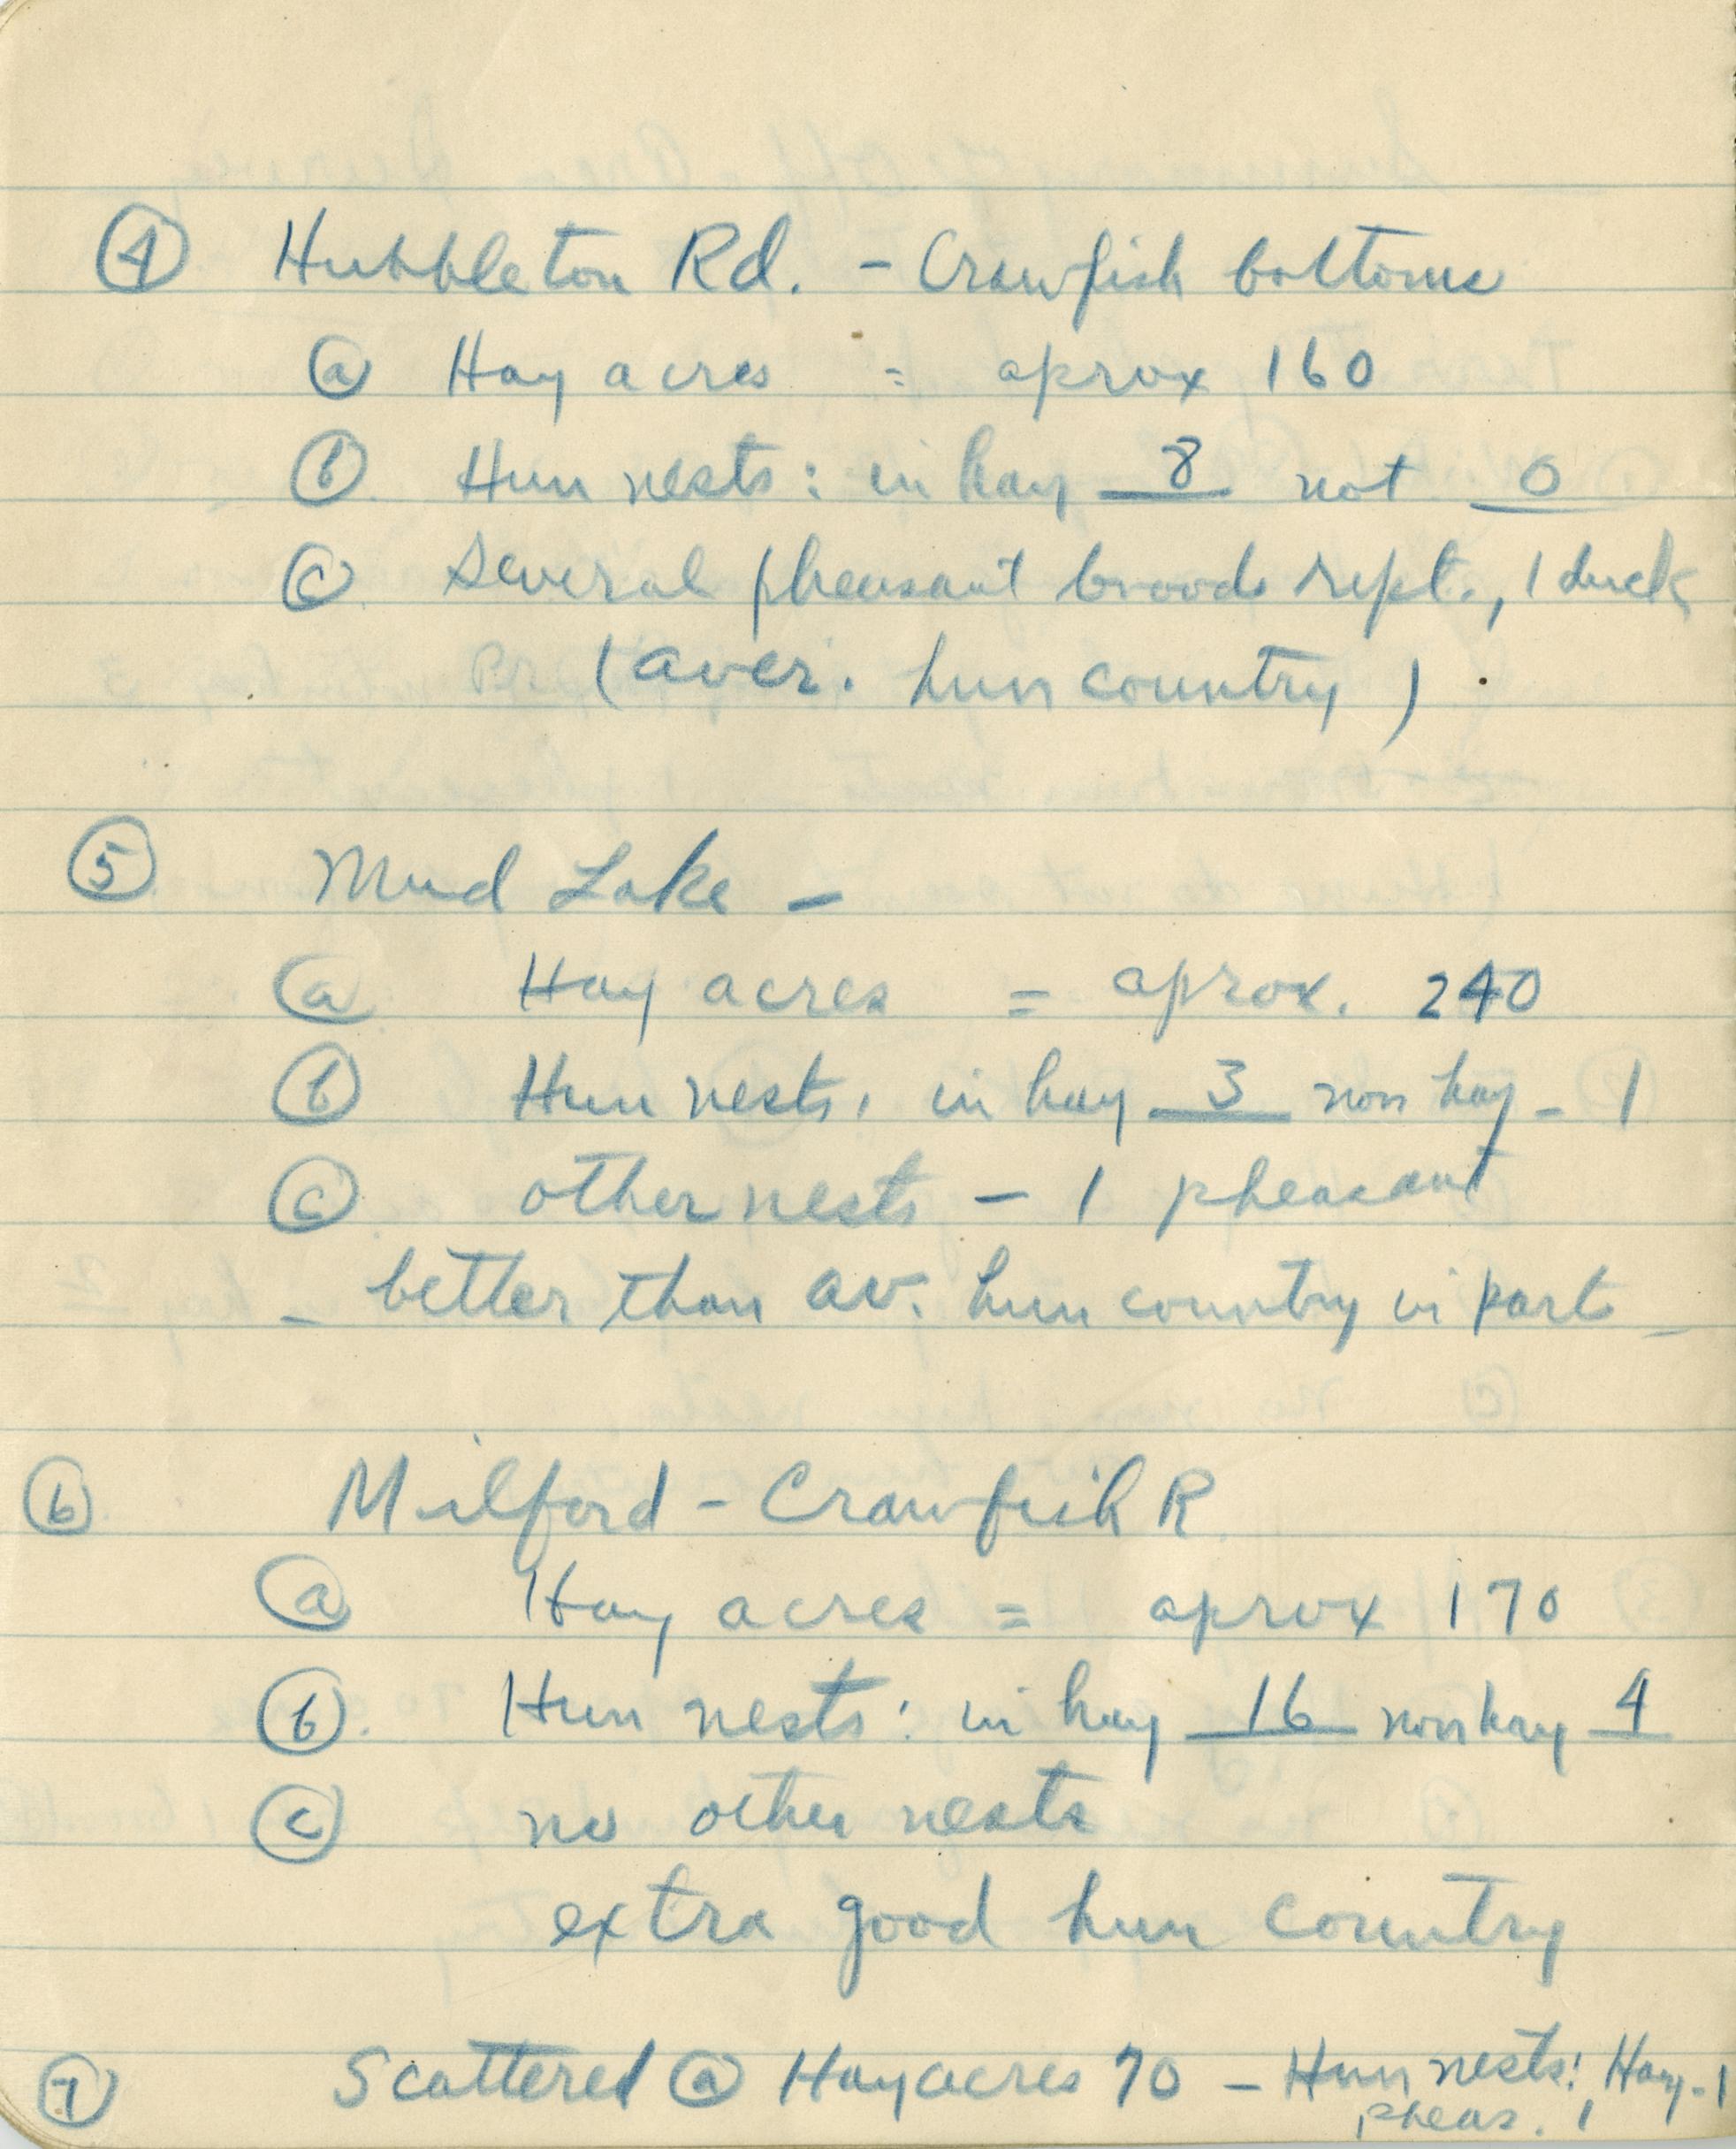 ④ Hubbleton Rd. - Crawfish bottoms
ⓐ Hay acres = aprox 160
ⓑ Hun nests: in hay 8 not 0
ⓒ Several pheasant broods rept., 1 duck
(aver. hun country)
⑤ Mud Lake -
ⓐ Hay acres = aprox. 240
ⓑ Hun nests, in hay 3 non hay - 1
ⓒ other nests - 1 pheasant
- better than av. hun country in part -
⑥ Milford - Crawfish R.
ⓐ Hay acres = aprox 170
ⓑ. Hun nests: in hay 16 non hay 4
ⓒ no other nests
extra good hun country
⑦ Scattered ⓐ Hay acres 70 - Hun nests: Hay - 1
pheas. 1